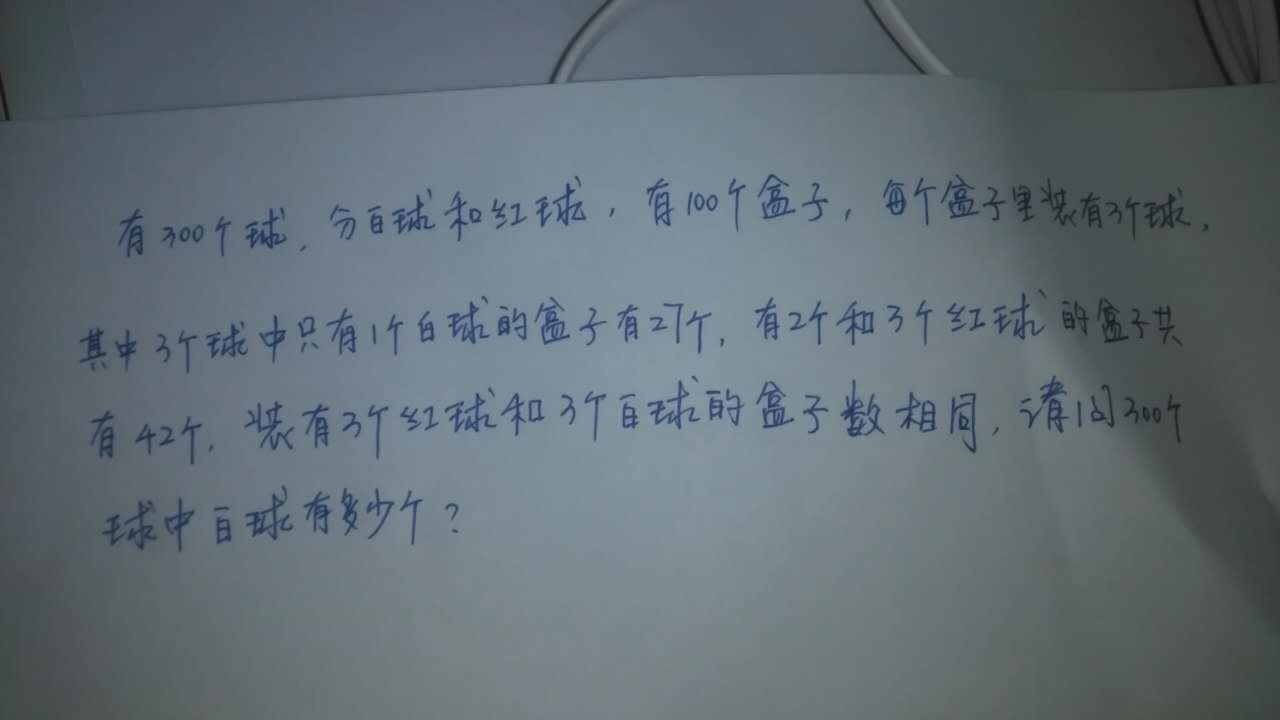 有300个球,分白球和红球,有100个盒子,每个盒子里装有3个球,
其中3个球中只有1个白球的盒子有27个,有2个和3个红球的盒子共
有42个,装有3个红球和3个白球的盒子数相同,请问300个
球中白球有多少个?